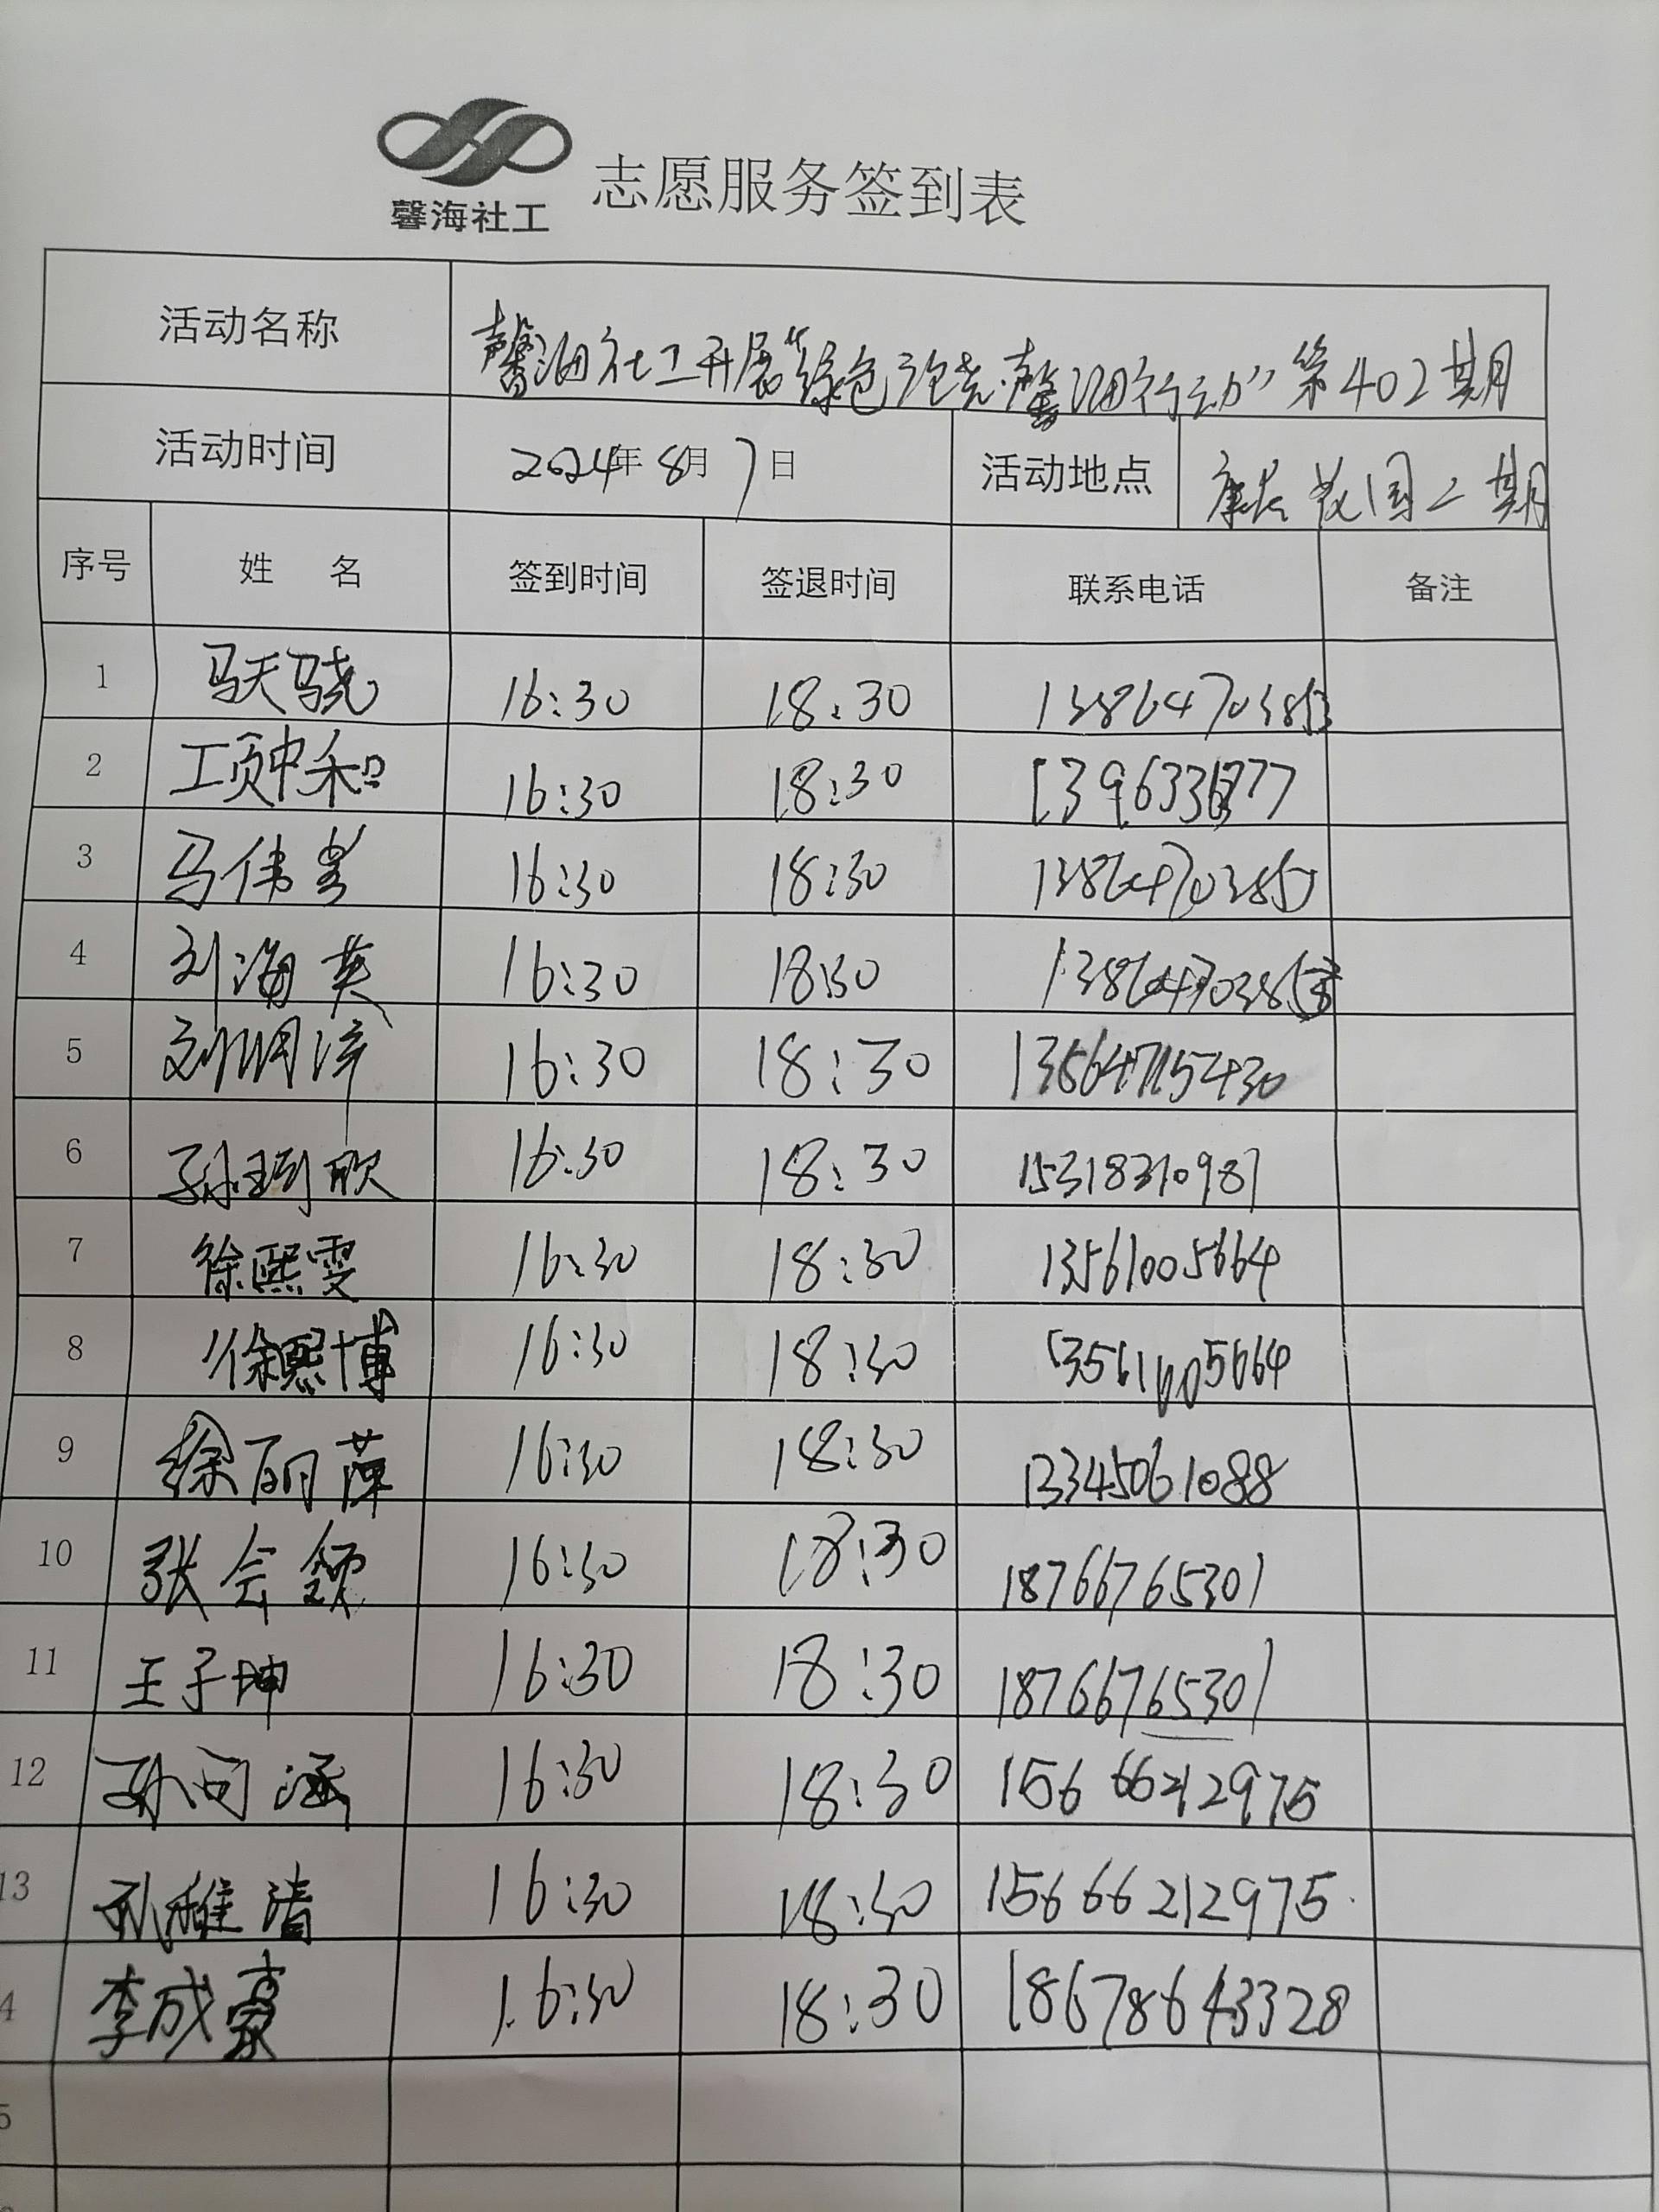 馨海社工
志愿服务签到表
活动名称 馨海社工开展"绿色 馨海行动"第402期
活动时间 2024年8月7日 活动地点 花园二期
序号 姓 名 签到时间 签退时间 联系电话 备注
1 马天骁 16:30 18:30
2 16:30 18:30
3 马伟 16:30 18:30
4 刘海英 16:30 18:30
5 16:30 18:30
6 16:30 18:30 15318310981
7 徐熙雯 16:30 18:30 13561005664
8 徐熙博 16:30 18:30 13561005664
9 徐丽萍 16:30 18:30 13345061088
10 张会颖 16:30 18:30 18766765301
11 王子坤 16:30 18:30 18766765301
12 16:30 18:30 15666212975
13 孙雅清 16:30 18:30 15666212975
4 李成豪 16:30 18:30 18678643328
5